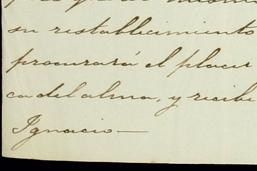 su restablecimiento
procurará el placer
ca del alma, y recibe
Ignacio—